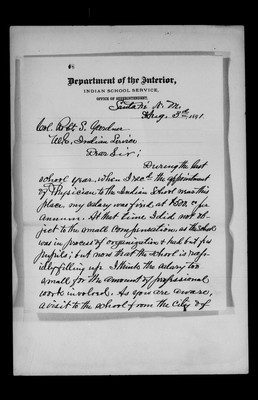 Department of the Interior,
INDIAN SCHOOL SERVICE,
OFFICE OF SUPERINTENDENT.
Santa Fe N. M.
Aug. 3rd, 1891
Col. Robt S. Gardner
Indian Service
Dear Sir;
During the last
school year, when I rec'd. the appointment
of Physician to the Indian School near this
place, my salary was fixed at per
annum. At that time I did not ob-
ject to the small compensation, as the School
was in process of organization & had but few
pupils; but now that the school is rap-
idly filling up I think the salary too
small for the amount of professional
work involved. As you are aware,
a visit to the school from the City of